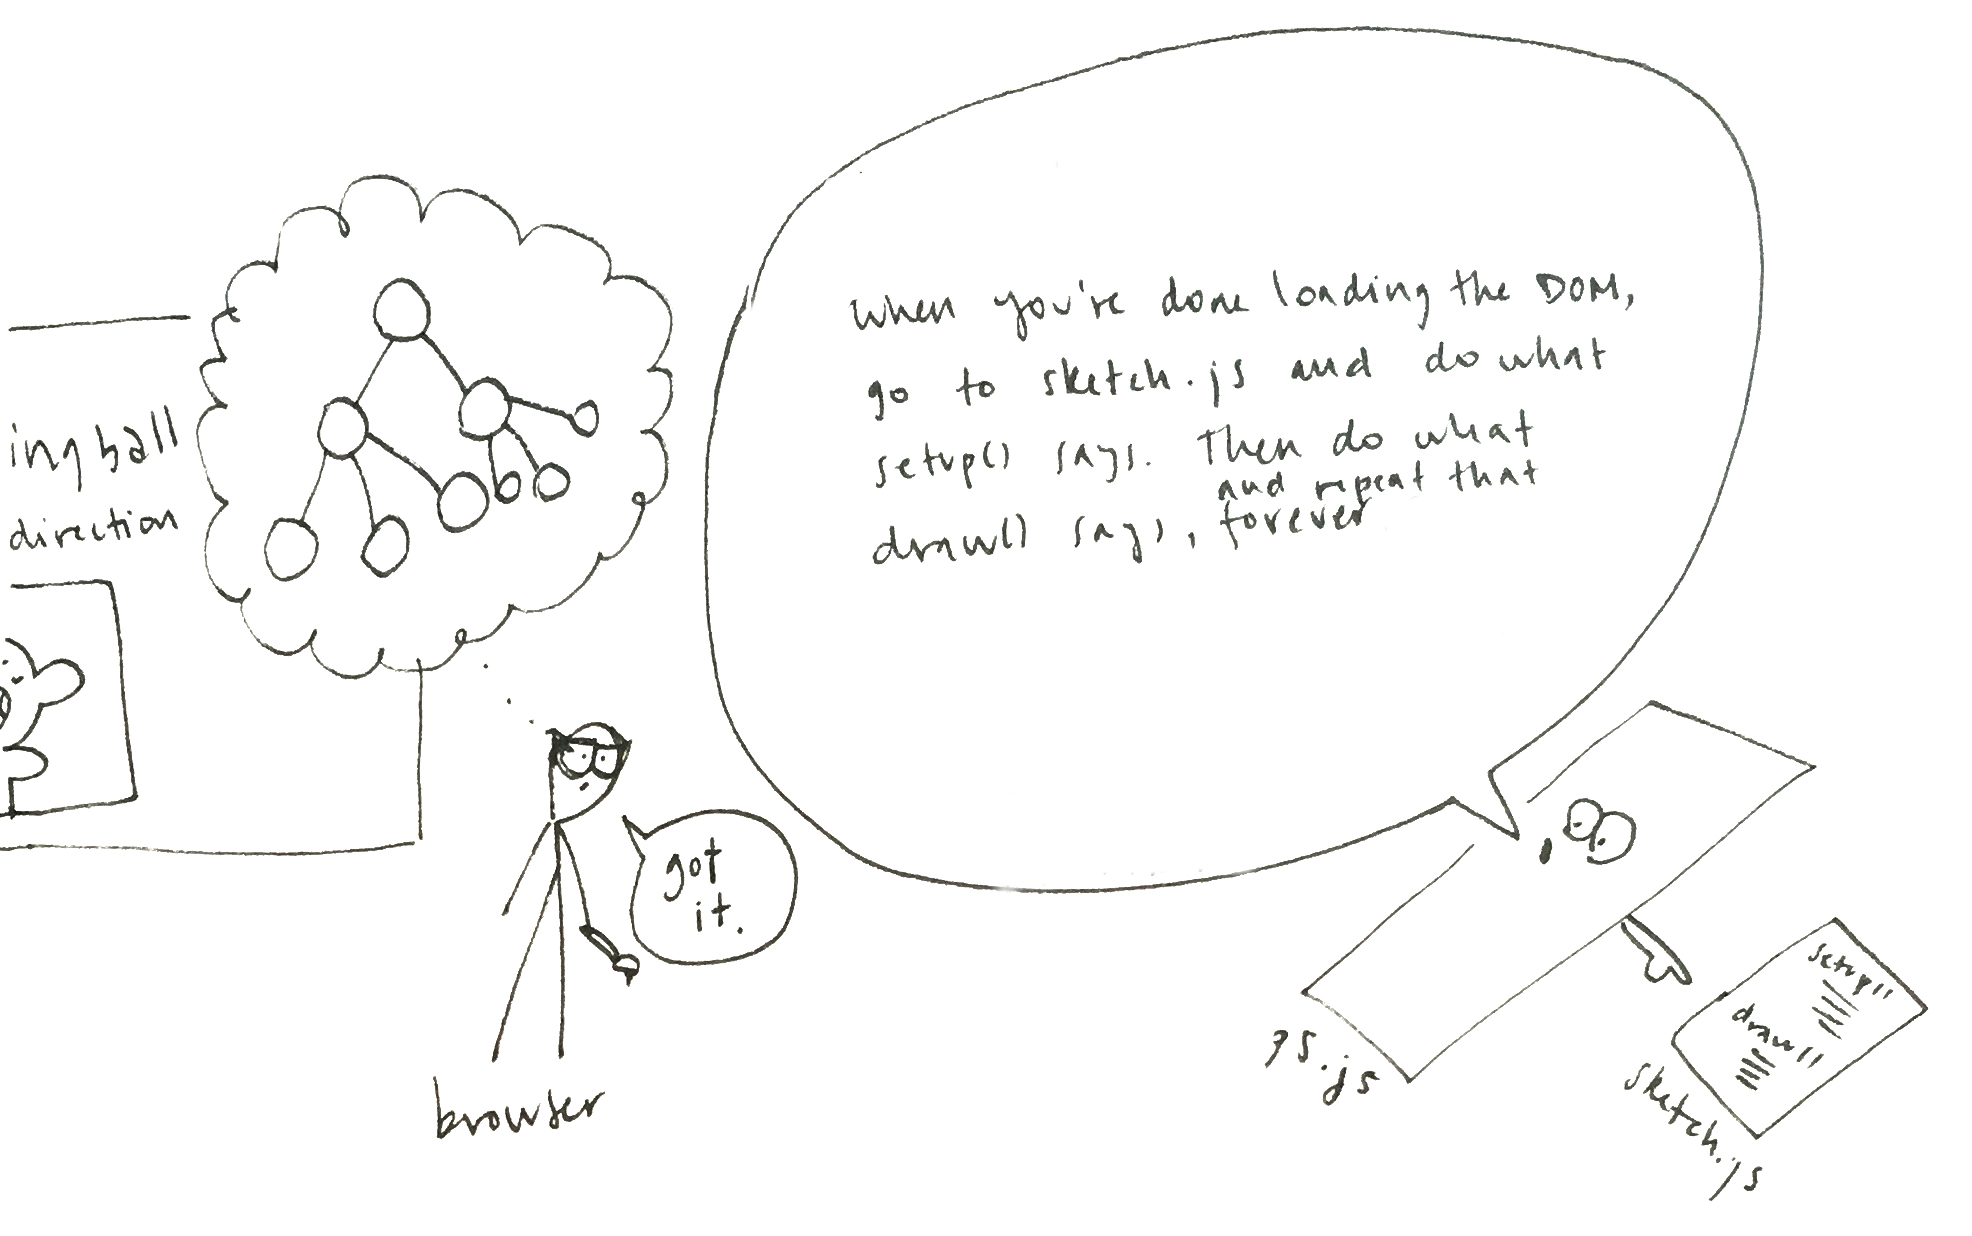 ing ball
direction
When you're done loading the DOM,
go to sketch.js and do what
setup() says. Then do what
draw() says, and repeat that
forever
got
it.
browser
p5.js
setup()
draw()
sketch.js